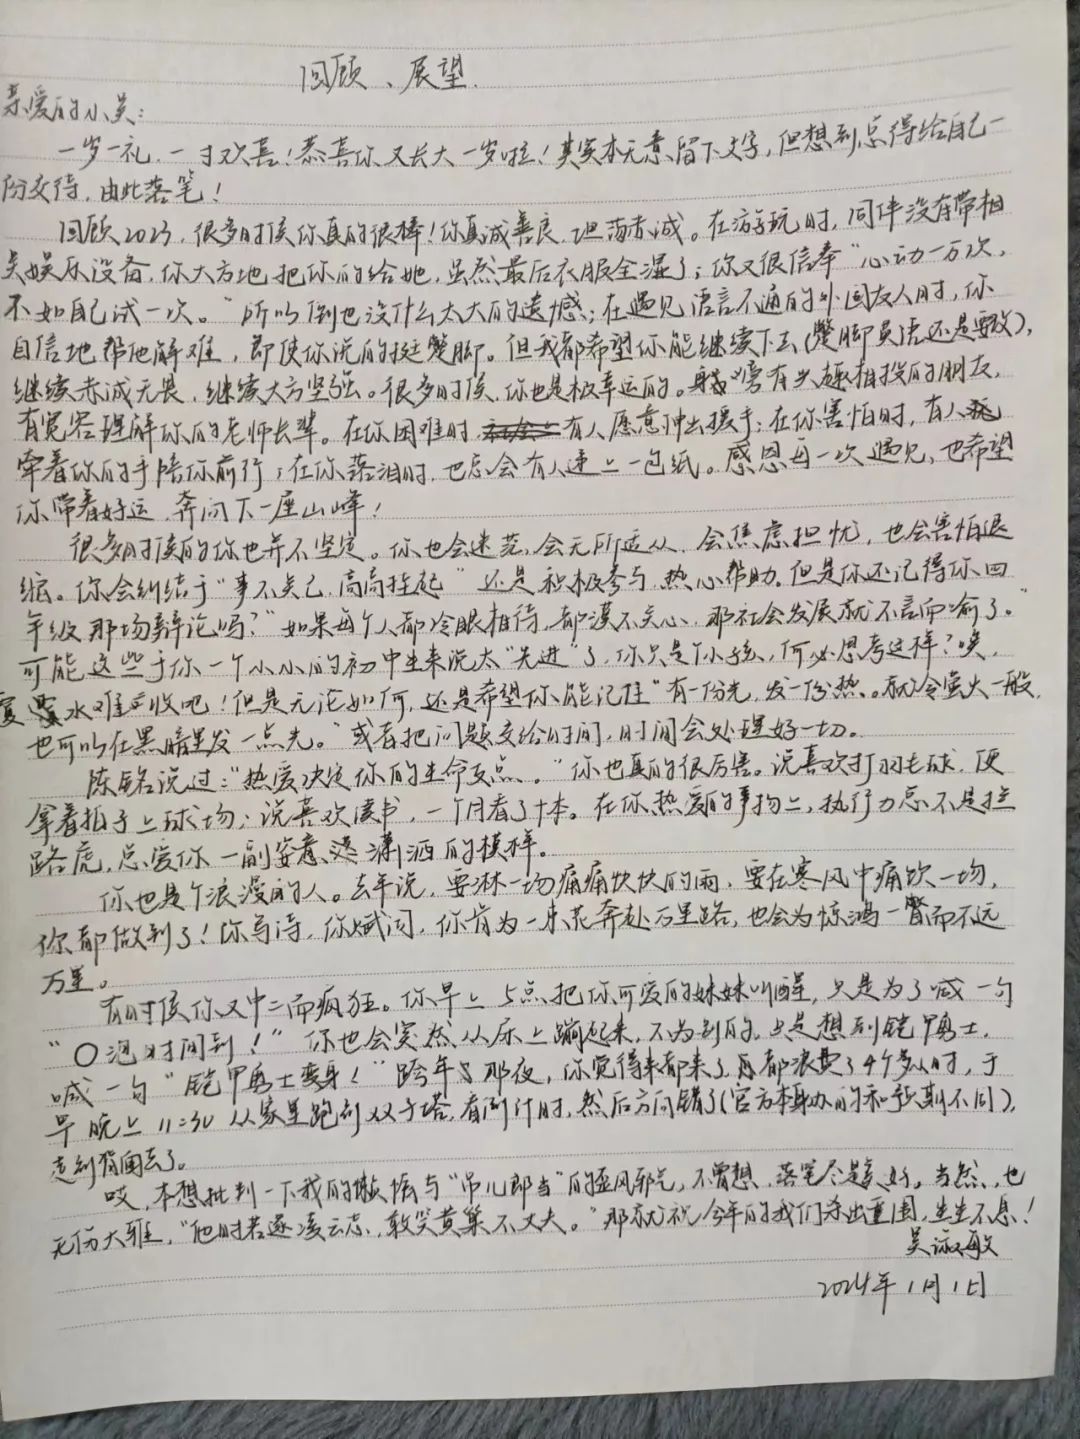 回顾、展望.
亲爱的小吴:
一岁一礼,一寸欢喜!恭喜你又长大一岁啦!其实本无意留下文字,但想到总得给自己一
份交待,由此落笔!
回顾2023,很多时候你真的很棒!你真诚善良,坦荡赤诚。在游玩时,同伴没有带相
关娱乐设备,你大方地把你的给她,虽然最后衣服全湿了;你又很信奉“心动一万次,
不如自己试一次。”所以倒也没什么太大的遗憾;在遇见语言不通的外国友人时,你
自信地帮他解难,即使你说的挺蹩脚。但我都希望你能继续下去(蹩脚英语还是要改),
继续赤诚无畏,继续大方坚强。很多时候,你也是极幸运的。身旁有兴趣相投的朋友,
有宽容理解你的老师长辈。在你困难时有人愿意伸出援手;在你害怕时,有人
牵着你的手陪你前行;在你落泪时,也总会有人递上一包纸。感恩每一次遇见,也希望
你带着好运,奔向下一座山峰!
很多时候的你也并不坚定。你也会迷茫,会无所适从,会焦虑担忧,也会害怕退
缩。你会纠结于“事不关己,高高挂起”还是积极参与,热心帮助。但是你还记得你四
年级那场辩论吗?“如果每个人都冷眼相待,都漠不关心,那社会发展就不言而喻了。”
可能这些于你一个小小的初中生来说太“先进”了,你只是个小孩,何必思考这样?唉,
覆水难收吧!但是无论如何,还是希望你能记住“有一份光,发一份热。就令萤火一般,
也可以在黑暗里发一点光。”或者把问题交给时间,时间会处理好一切。
陈铭说过:“热爱决定你的生命支点。”你也真的很厉害。说喜欢打羽毛球,便
拿着拍子上球场;说喜欢读书,一个月看了十本。在你热爱的事物上,执行力总不是拦
路虎,总爱你一副恣意潇洒的模样。
你也是个浪漫的人。去年说,要淋一场痛痛快快的雨,要在寒风中痛饮一场,
你都做到了!你写诗,你赋词,你肯为一束花奔赴万里路,也会为惊鸿一瞥而不远
万里。
有时候你又中二而疯狂。你早上5点把你可爱的妹妹叫醒,只是为了喊一句
“〇泡时间到!”你也会突然从床上蹦起来,不为别的,只是想到铠甲勇士,
喊一句“铠甲勇士变身!”跨年那夜,你觉得来都来了,都浪费了4个多小时,于
早晚上11:30从家里跑到双子塔,看倒计时,然后方向错了(官方本身办的和预期不同),
走到
哎,本想批判一下我的懒惰与“吊儿郎当”的歪风邪气,不曾想,落笔尽是好。当然,也
无伤大雅,“他时若遂凌云志,敢笑黄巢不丈夫。”那就祝今年的我们杀出重围,生生不息!
吴淑敏
2024年1月1日